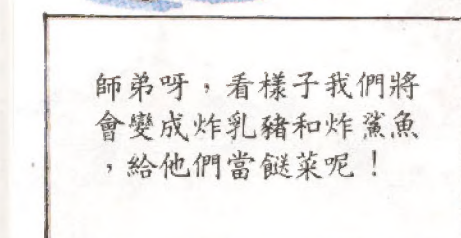 師弟呀，看樣子我們將
會變成炸乳豬和炸鯊魚
，給他們當餸菜呢！